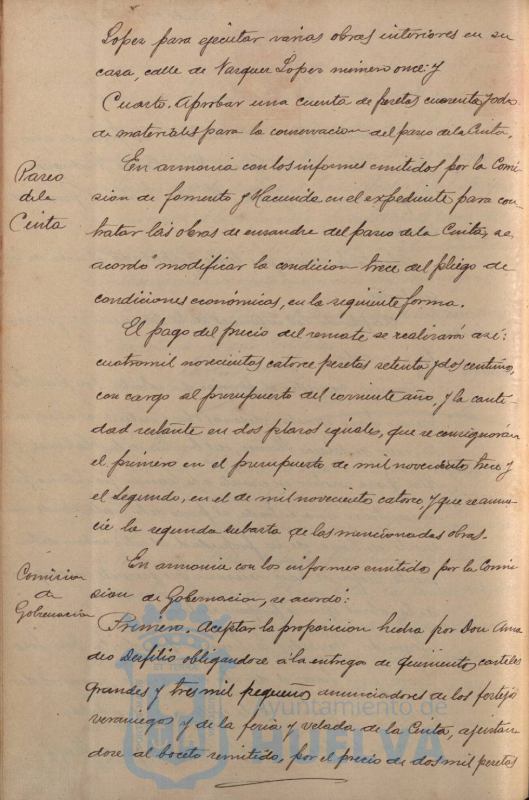 Lopez para ejecutar varias obras interiores en su
casa, calle de Vazquez Lopez número once: y
Cuarto. Aprobar una cuenta de pesetas cuarenta y ocho
de materiales para la conservacion del paseo de la Cinta.
Paseo
de la
Cinta
En armonia con los informes emitidos por la Comi-
sion de fomento y Hacienda en el expediente para con-
tratar las obras de ensanche del paseo de la Cinta, se
acordó modificar la condicion trece del pliego de
condiciones económicas, en la siguiente forma.
El pago del precio del remate se realizará así:
cuatro mil novecientas catorce pesetas setenta y dos centimos,
con cargo al presupuesto del corriente año, y la canti-
dad restante en dos plazos iguales, que se consignarán
el primero en el presupuesto de mil novecientos trece y
el segundo, en el de mil novecientos catorce, y que se anun-
cie la segunda subasta de las mencionadas obras.
Comision
de
Gobernacion
En armonia con los informes emitidos por la Comi-
sion de Gobernacion, se acordó:
Primero. Aceptar la proposicion hecha por Don Ama-
deo obligandose á la entrega de quinientos carteles
grandes y tres mil pequeños anunciadores de los festejos
veraniegos y de la feria y velada de la Cinta, ajustan-
dose al boceto remitido, por el precio de dos mil pesetas
Ayuntamiento de
HUELVA